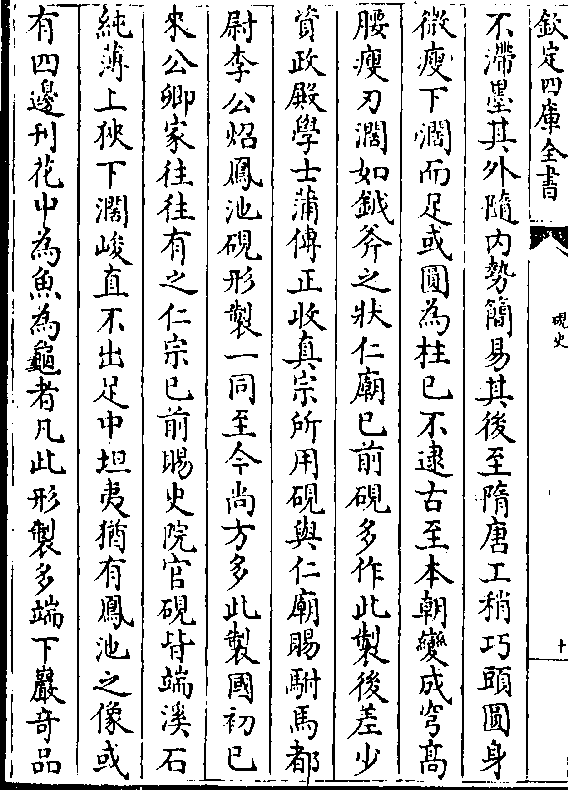 欽定四庫全書
硯史
十
不滯墨其外隨内勢簡易其後至隋唐工稍巧頭圓身
微瘦下濶而足或圓為柱已不逮古至本朝變成穹髙
腰瘦刃濶如鉞斧之狀仁廟已前硯多作此製後差少
資政殿學士蒲傳正收真宗所用硯與仁廟賜駙馬都
尉李公炤鳳池硯形製一同至今尚方多此製國初已
來公卿家往往有之仁宗已前賜史院官硯皆端溪石
純薄上狹下濶峻直不出足中坦夷猶有鳳池之像或
有四邊刋花中為魚為龜者凡此形製多端下巖奇品